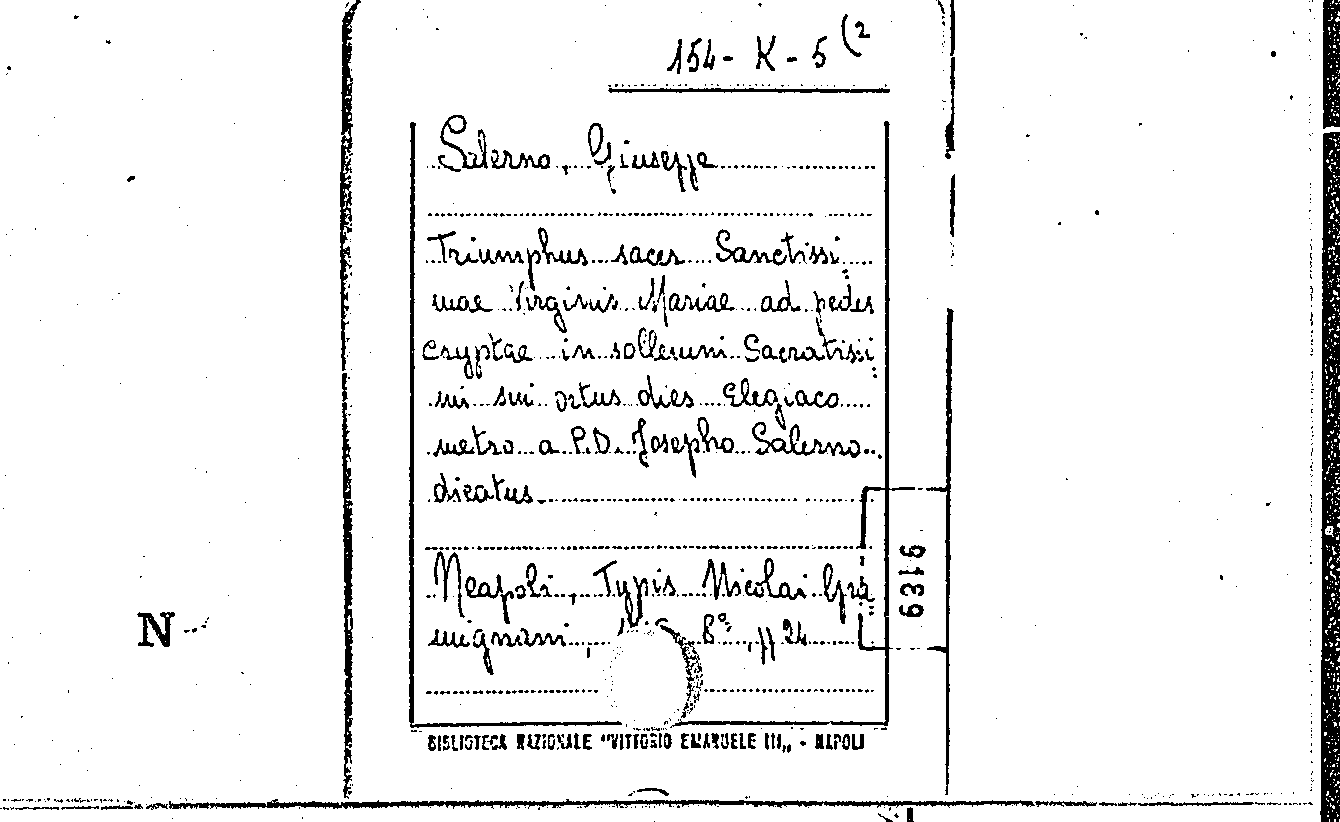 154-K-5 (2
Salerno, Giuseppe
Triumphus sacer Sanctissi
mae Virginis Mariae ad pedes
cryptae in sollemni Sacratissi
mi sui ortus dies Elegiaco
metro a P.D. Josepho Salerno
dicatus
Neapoli, Typis Nicolai Gra
mignani, 8°, pp 24
9139
N
BIBLIOTECA NAZIONALE "VITTORIO EMANUELE III„ - NAPOLI